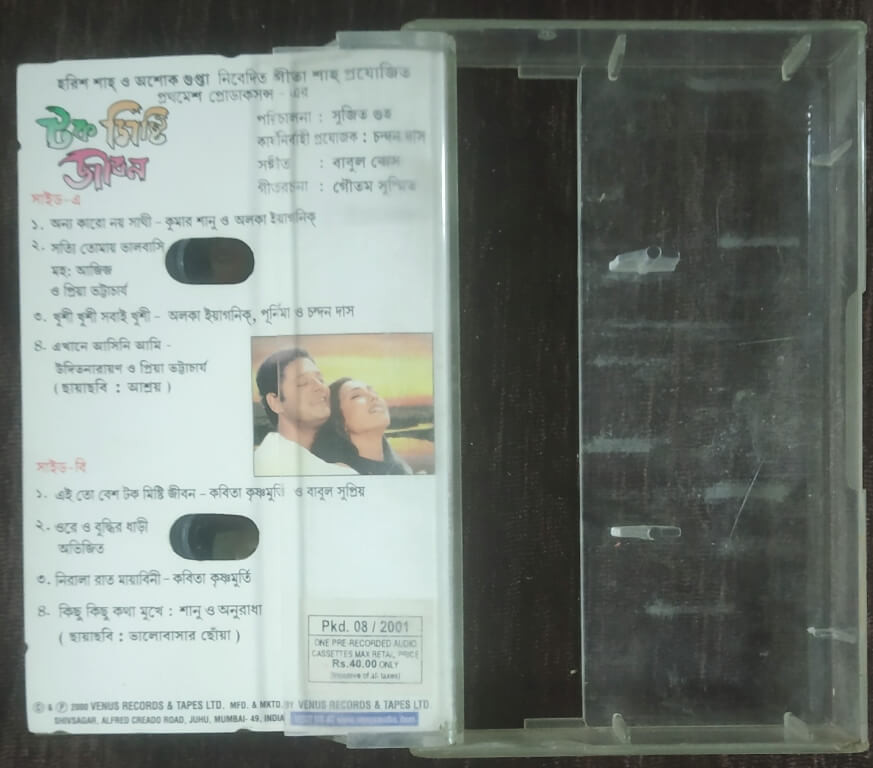 হরিশ শাহ ও অশোক গুপ্তা নিবেদিত গীতা শাহ প্রযোজিত
প্রথমেশ প্রোডাকসন্স - এর
টক মিষ্টি
জীবন
পরিচালনা : সুজিত গুহ
কার্যনির্বাহী প্রযোজক : চন্দন দাস
সঙ্গীত : বাবুল বোস
গীতরচনা : গৌতম সুস্মিত
সাইড-এ
১. অন্য কারো নয় সাথী - কুমার শানু ও অলকা ইয়াগনিক্
২. সত্যি তোমায় ভালবাসি
মহ: আজিজ
ও প্রিয়া ভট্টাচার্য
৩. খুশী খুশী সবাই খুশী - অলকা ইয়াগনিক্, পূর্নিমা ও চন্দন দাস
৪- এখানে আসিনি আমি -
উদিতনারায়ণ ও প্রিয়া ভট্টাচার্য
( ছায়াছবি : আশ্রয় )
সাইড-বি
১. এই তো বেশ টক মিষ্টি জীবন - কবিতা কৃষ্ণমুর্তি ও বাবুল সুপ্রিয়
২. ওরে ও বুদ্ধির ধাড়ী
অভিজিত
৩. নিরালা রাত মায়াবিনী - কবিতা কৃষ্ণমুর্তি
৪- কিছু কিছু কথা মুখে : শানু ও অনুরাধা
( ছায়াছবি : ভালোবাসার ছোঁয়া )
Pkd. 08 / 2001
ONE PRE-RECORDED AUDIO
CASSETTES MAX RETAIL PRICE
Rs.40.00 ONLY
(Inclusive of all taxes)
© & ℗ 2000 VENUS RECORDS & TAPES LTD. MFD. & MKTD. BY VENUS RECORDS & TAPES LTD.
SHIVSAGAR, ALFRED CREADO ROAD, JUHU, MUMBAI- 49, INDIA
VISIT US AT www.venusaudio.com